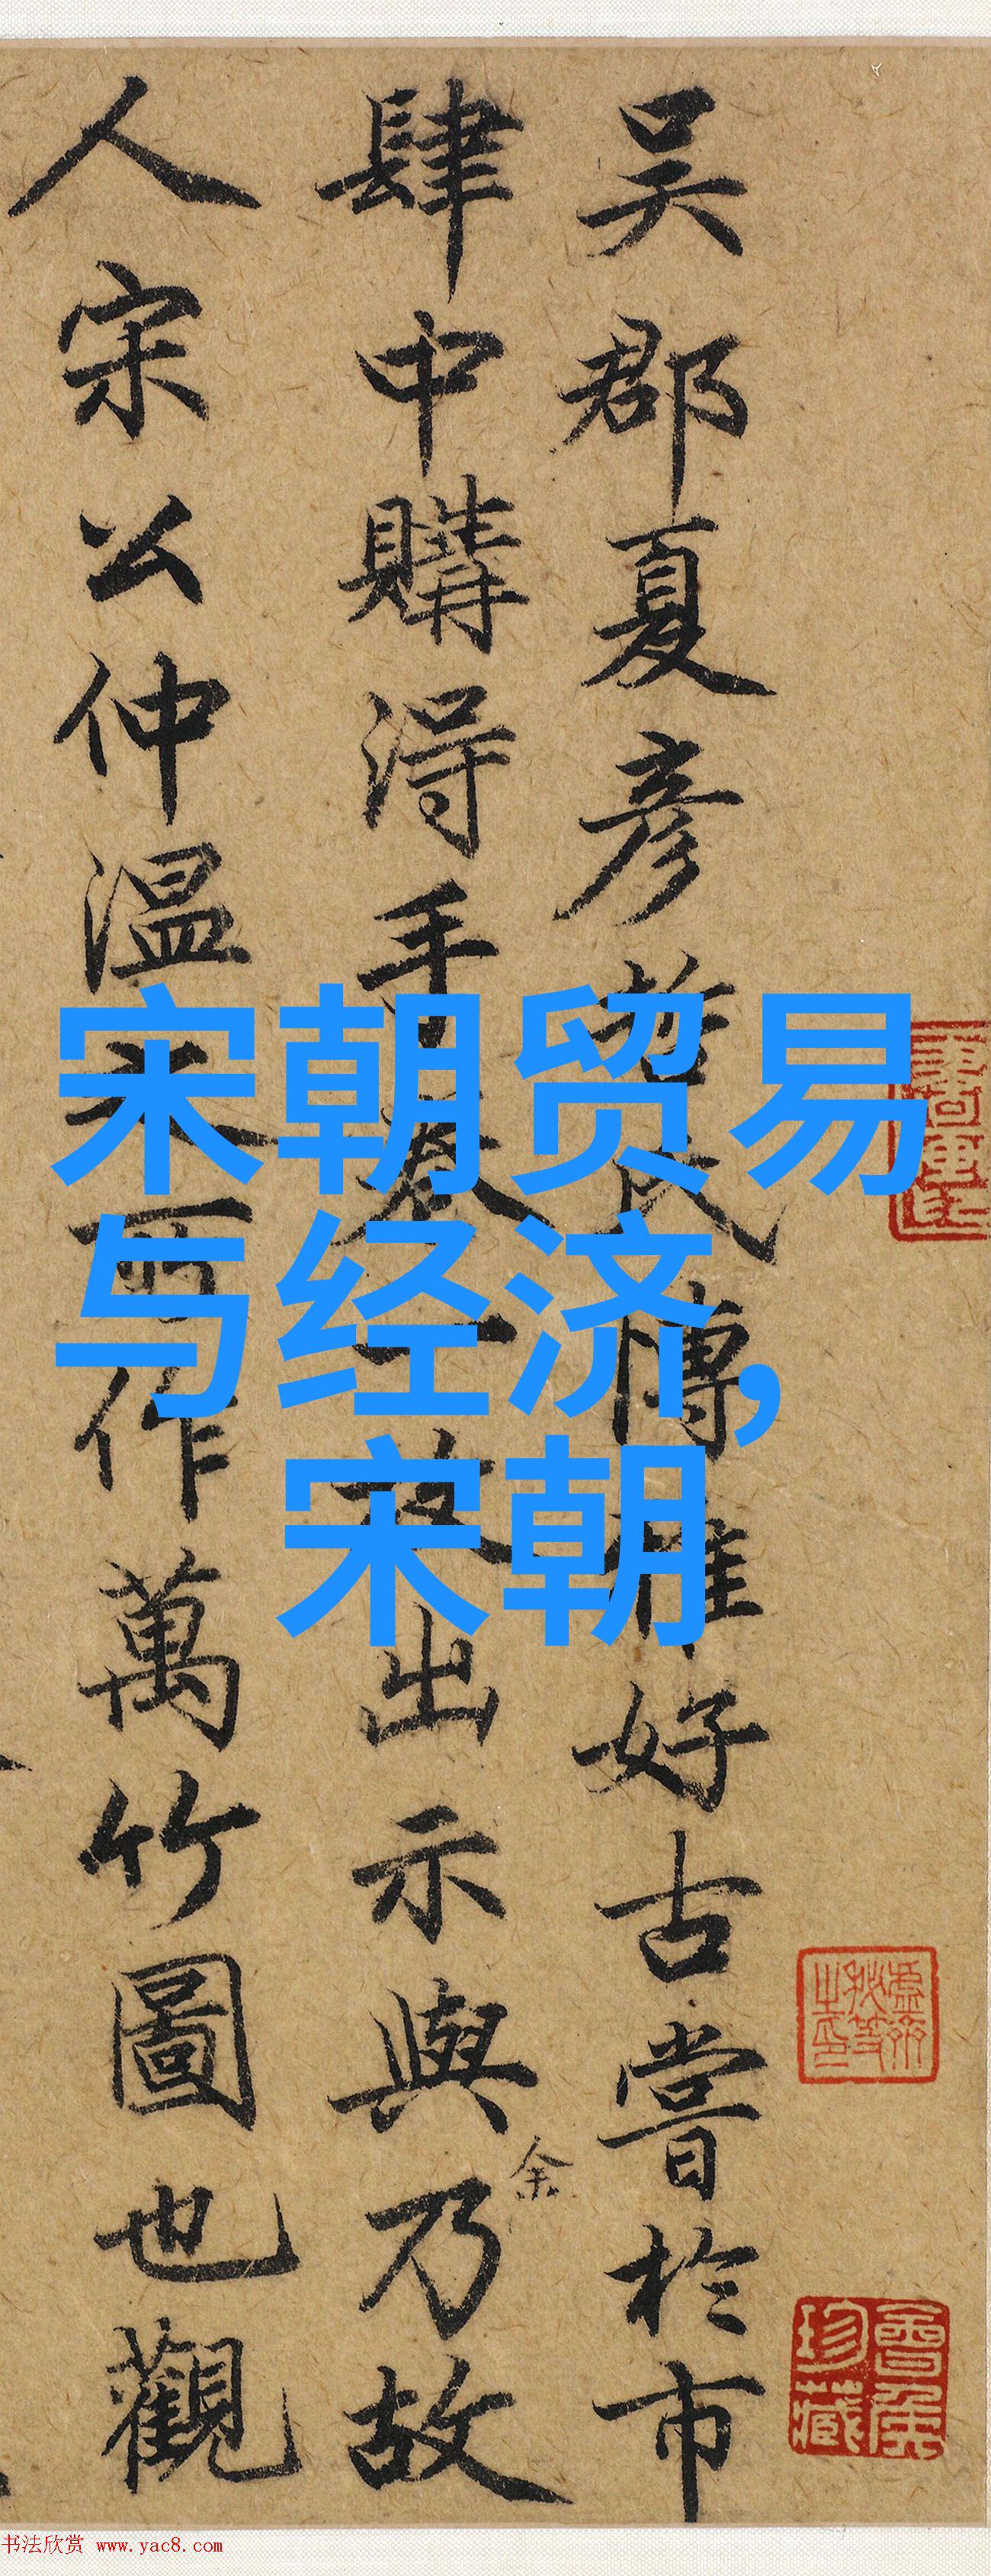 吴郡夏彦博雅好古嘗於市
肆中購得手卷一出示與余乃故
人宋公仲温所作萬竹圖也觀
宋朝贸易
与经济,
宋朝
珍藏
书法欣赏 www.yac8.com